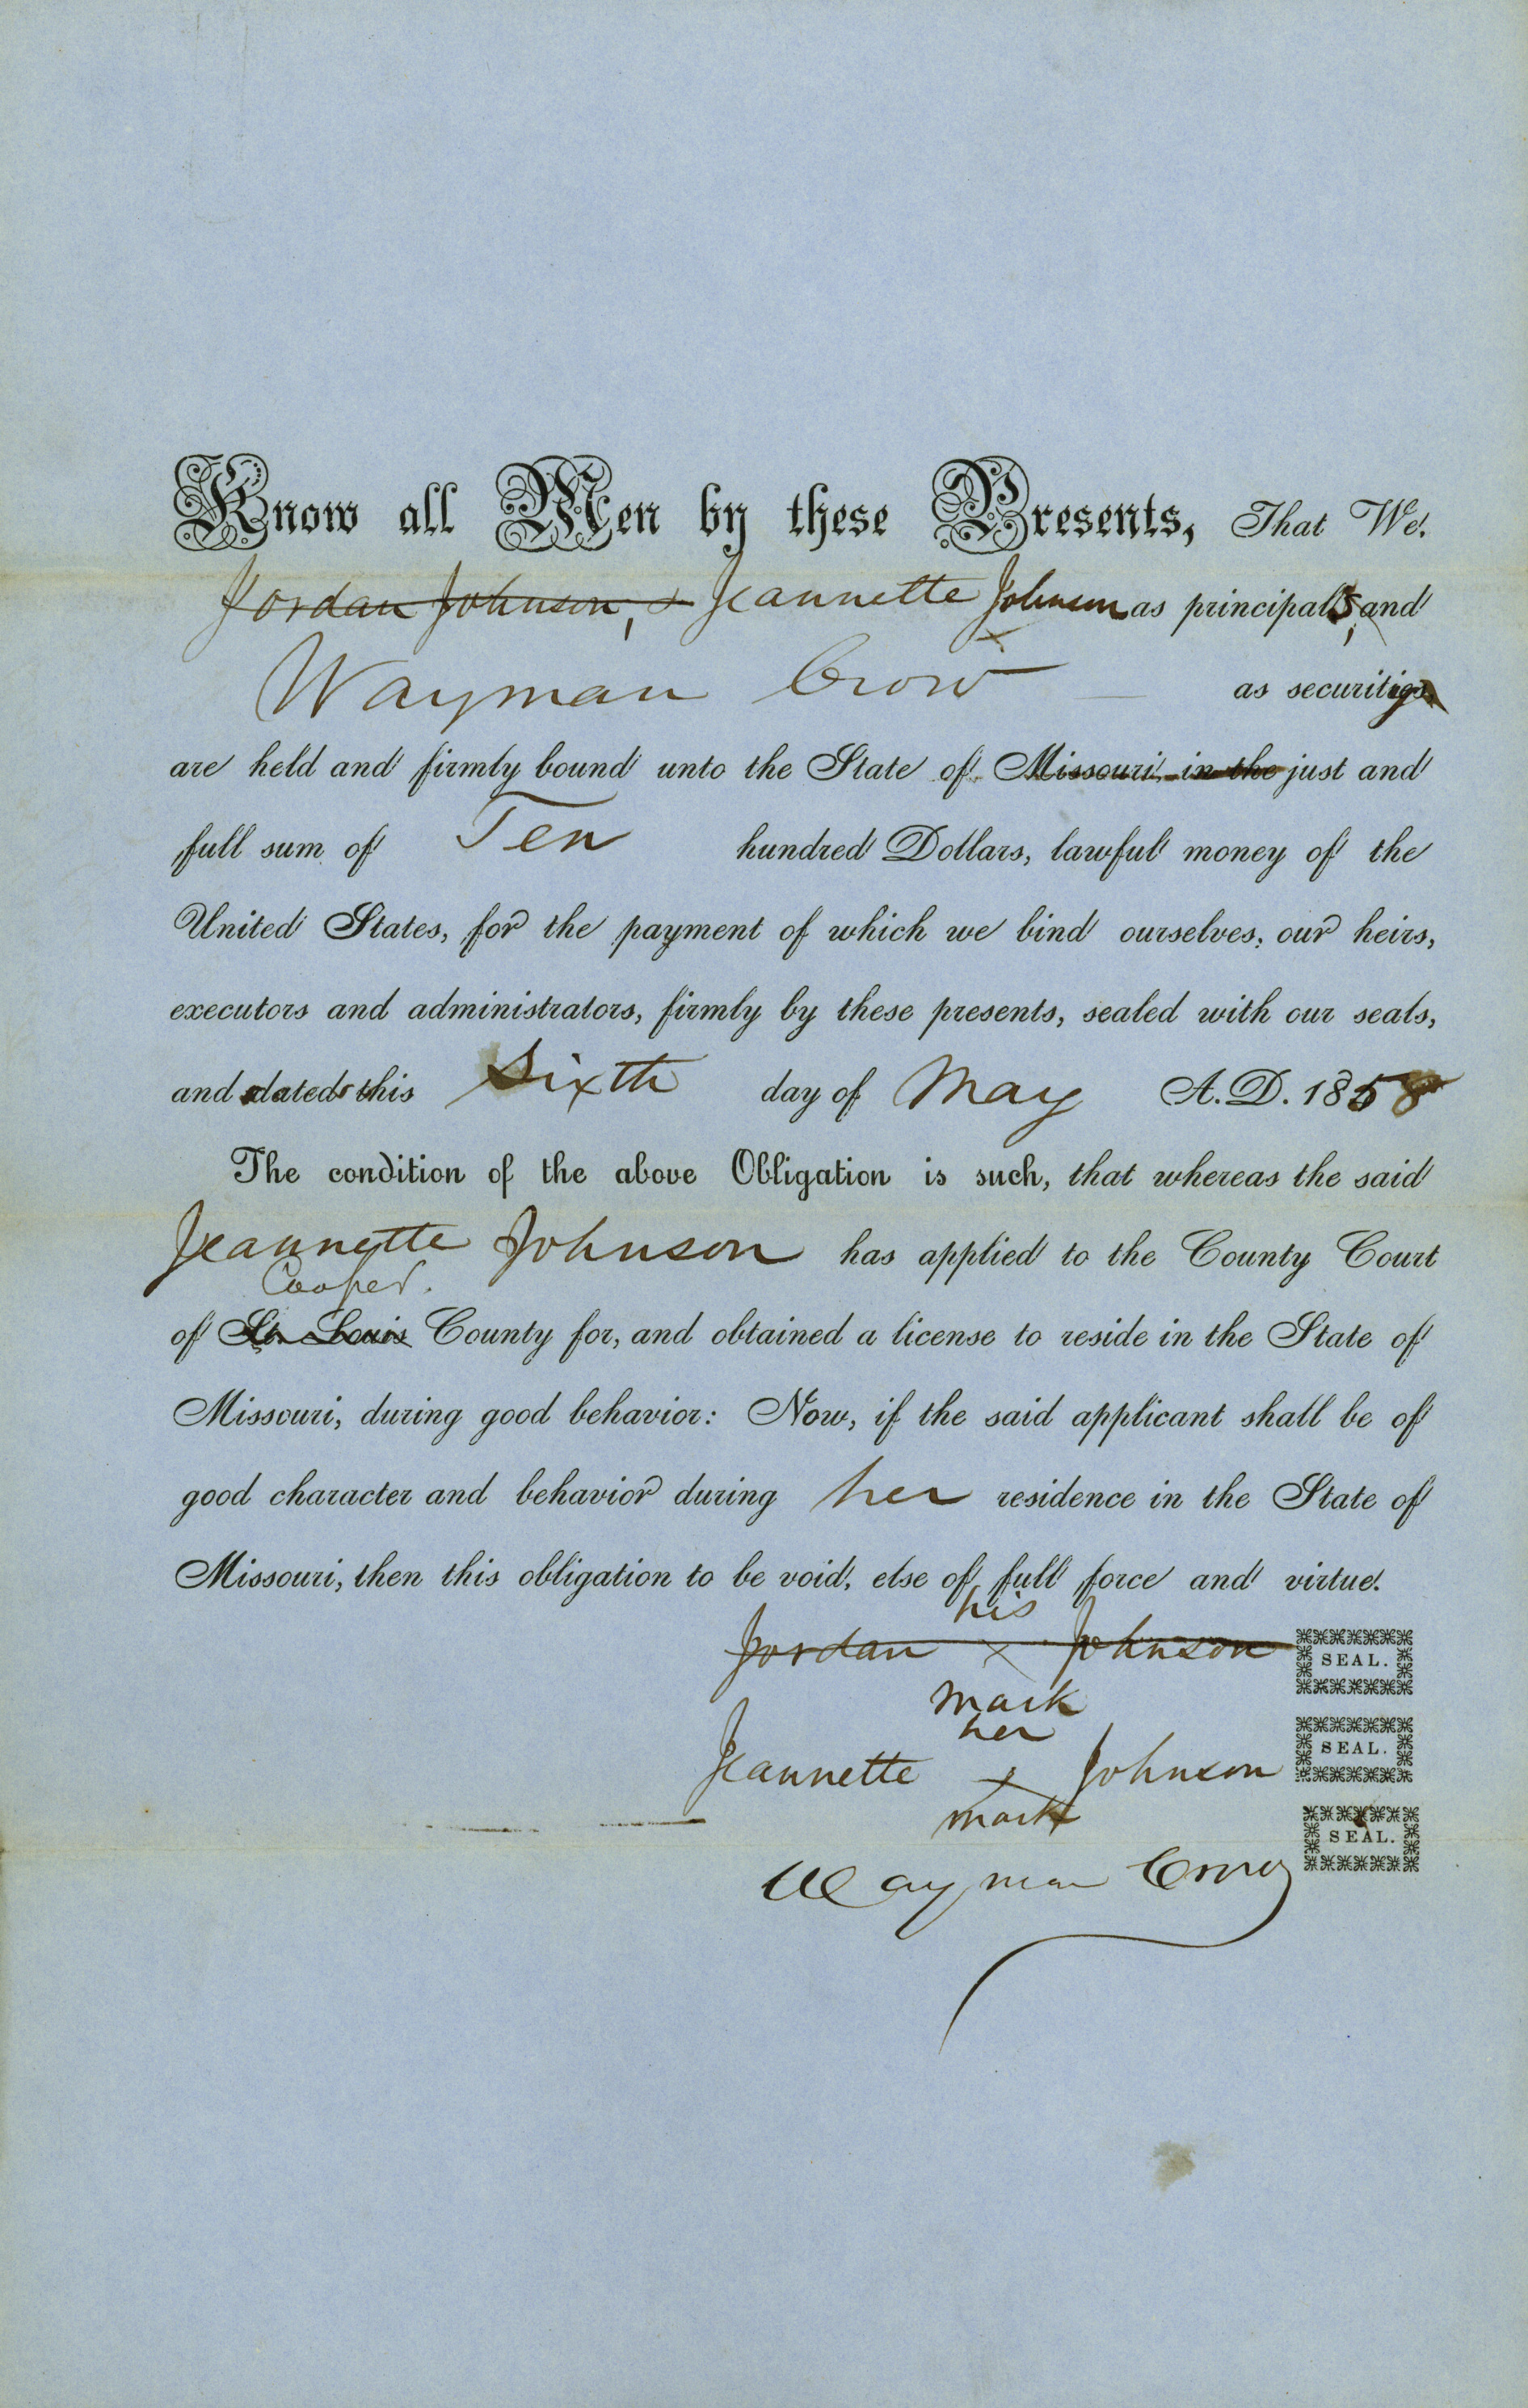 Know all Men by these Presents, That We,
Jordan Johnson, & Jeannette Johnson as principals, and
Wayman Crow as securities,
are held and firmly bound unto the State of Missouri, in the just and
full sum of Ten hundred Dollars, lawful money of the
United States, for the payment of which we bind ourselves, our heirs,
executors and administrators, firmly by these presents, sealed with our seals,
and dated this Sixth day of May A.D. 1858
The condition of the above Obligation is such, that whereas the said
Jeannette Johnson has applied to the County Court
Cooper.
of St. Louis County for, and obtained a license to reside in the State of
Missouri, during good behavior: Now, if the said applicant shall be of
good character and behavior during her residence in the State of
Missouri, then this obligation to be void, else of full force and virtue.
his
Jordan x Johnson SEAL.
mark
her
Jeannette x Johnson SEAL.
mark
SEAL.
Wayman Crow